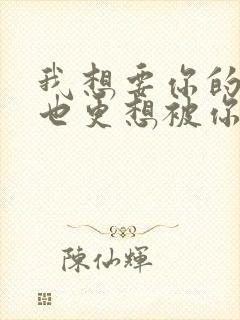 我想要你的
也更想被你
陳仙輝